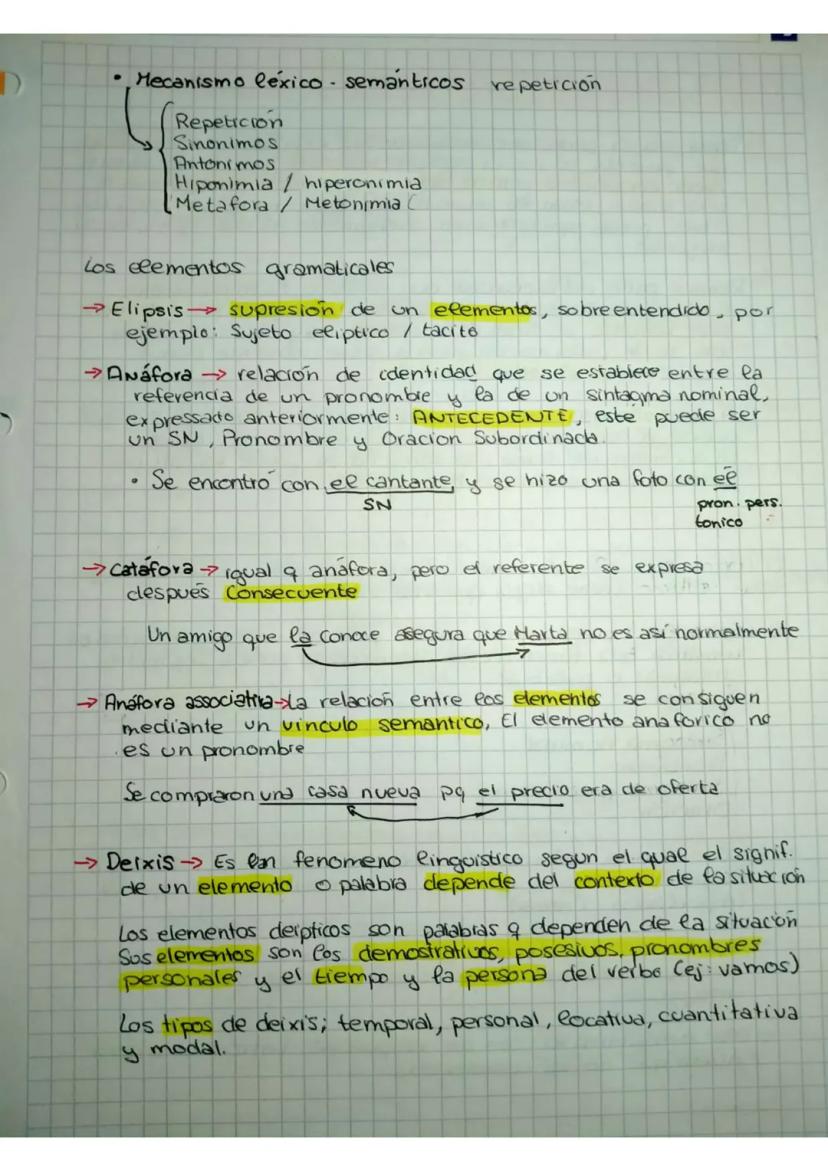 • Mecanismo léxico - semánticos repetición
Repetición
Sinonimos
Antonimos
Hiponimia / hiperonimia
Metafora / Metonimia (
Los elementos gramaticales
→ Elipsis → supresión de un elementos, sobreentendido, por
ejemplo: Sujeto eliptico / tacito
→ Anáfora → relación de identidad que se establece entre la
referencia de un pronombre y la de un sintagma nominal,
expresado anteriormente: ANTECEDENTE, este puede ser
un SN, Pronombre y Oracion Subordinada.
• Se encontró con el cantante y se hizo una foto con él
SN
pron. pers.
tonico
→ Catáfora → igual q anáfora, pero el referente se expresa
después Consecuente
Un amigo que la conoce asegura que Marta no es así normalmente
→ Anáfora associativa → La relación entre los elementos se consiguen
mediante un vinculo semantico, El elemento anaforico no
es un pronombre
Se compraron una casa nueva pq el precio era de oferta
→ Deixis → Es un fenomeno linguistico segun el qual el signif.
de un elemento o palabra depende del contexto de la situación
Los elementos deipticos son palabras q dependen de la situación
Sus elementos son los demostrativos, posesivos, pronombres
personales y el tiempo y la persona del verbo (ej: vamos)
Los tipos de deixis; temporal, personal, locativa, cuantitativa
y modal.